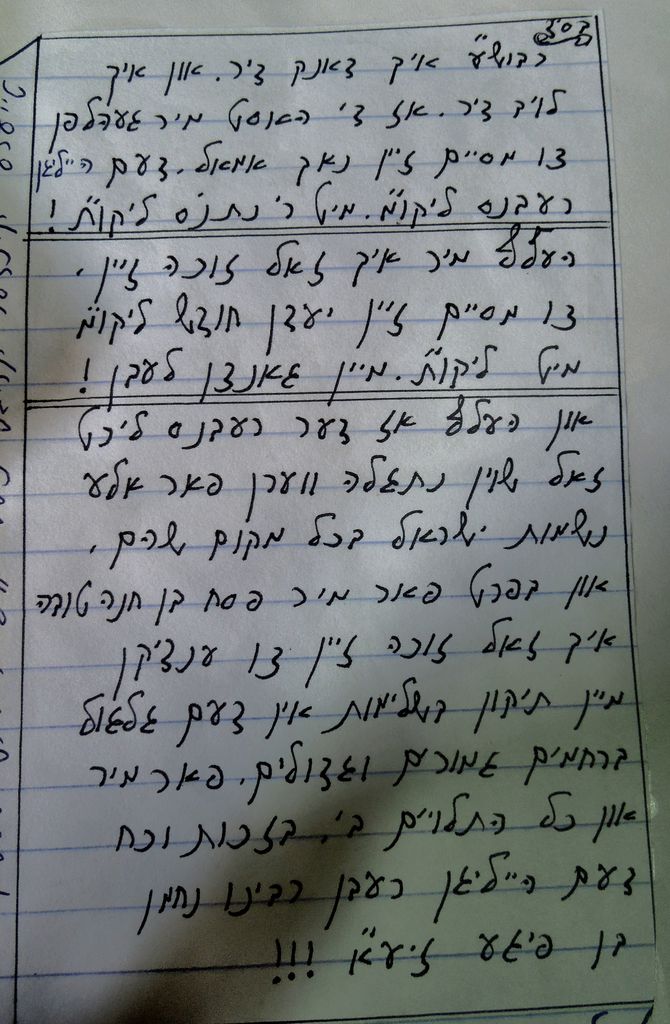 בס"ד
רבוש"ע איך דאנק דיר. און איך
לויב דיר. אז די האוסט מיר געהאלפן
צו מסיים זיין נאך אמאל. דעם הייליגן
רעבנס ליקו"מ. מיט ר' נתנ'ס ליקו"ת!
העלף מיר איך זאל זוכה זיין,
צו מסיים זיין יעדן חודש ליקו"מ
מיט ליקו"ת. מיין גאנצן לעבן!
און העלף אז דער רעבנס ליכט
זאל שוין נתגלה ווערן פאר אלע
נשמות ישראל בכל מקום שהם,
און בפרט פאר מיר פסח בן חנה טובה
איך זאל זוכה זיין צו ענדיקן
מיין תיקון בשלימות אין דעם גלגול
ברחמים גמורים וגדולים. פאר מיר
און כל התלויים בי. בזכות וכח
דעם הייליגן רעבן רבינו נחמן
בן פיגע זיע"א !!!